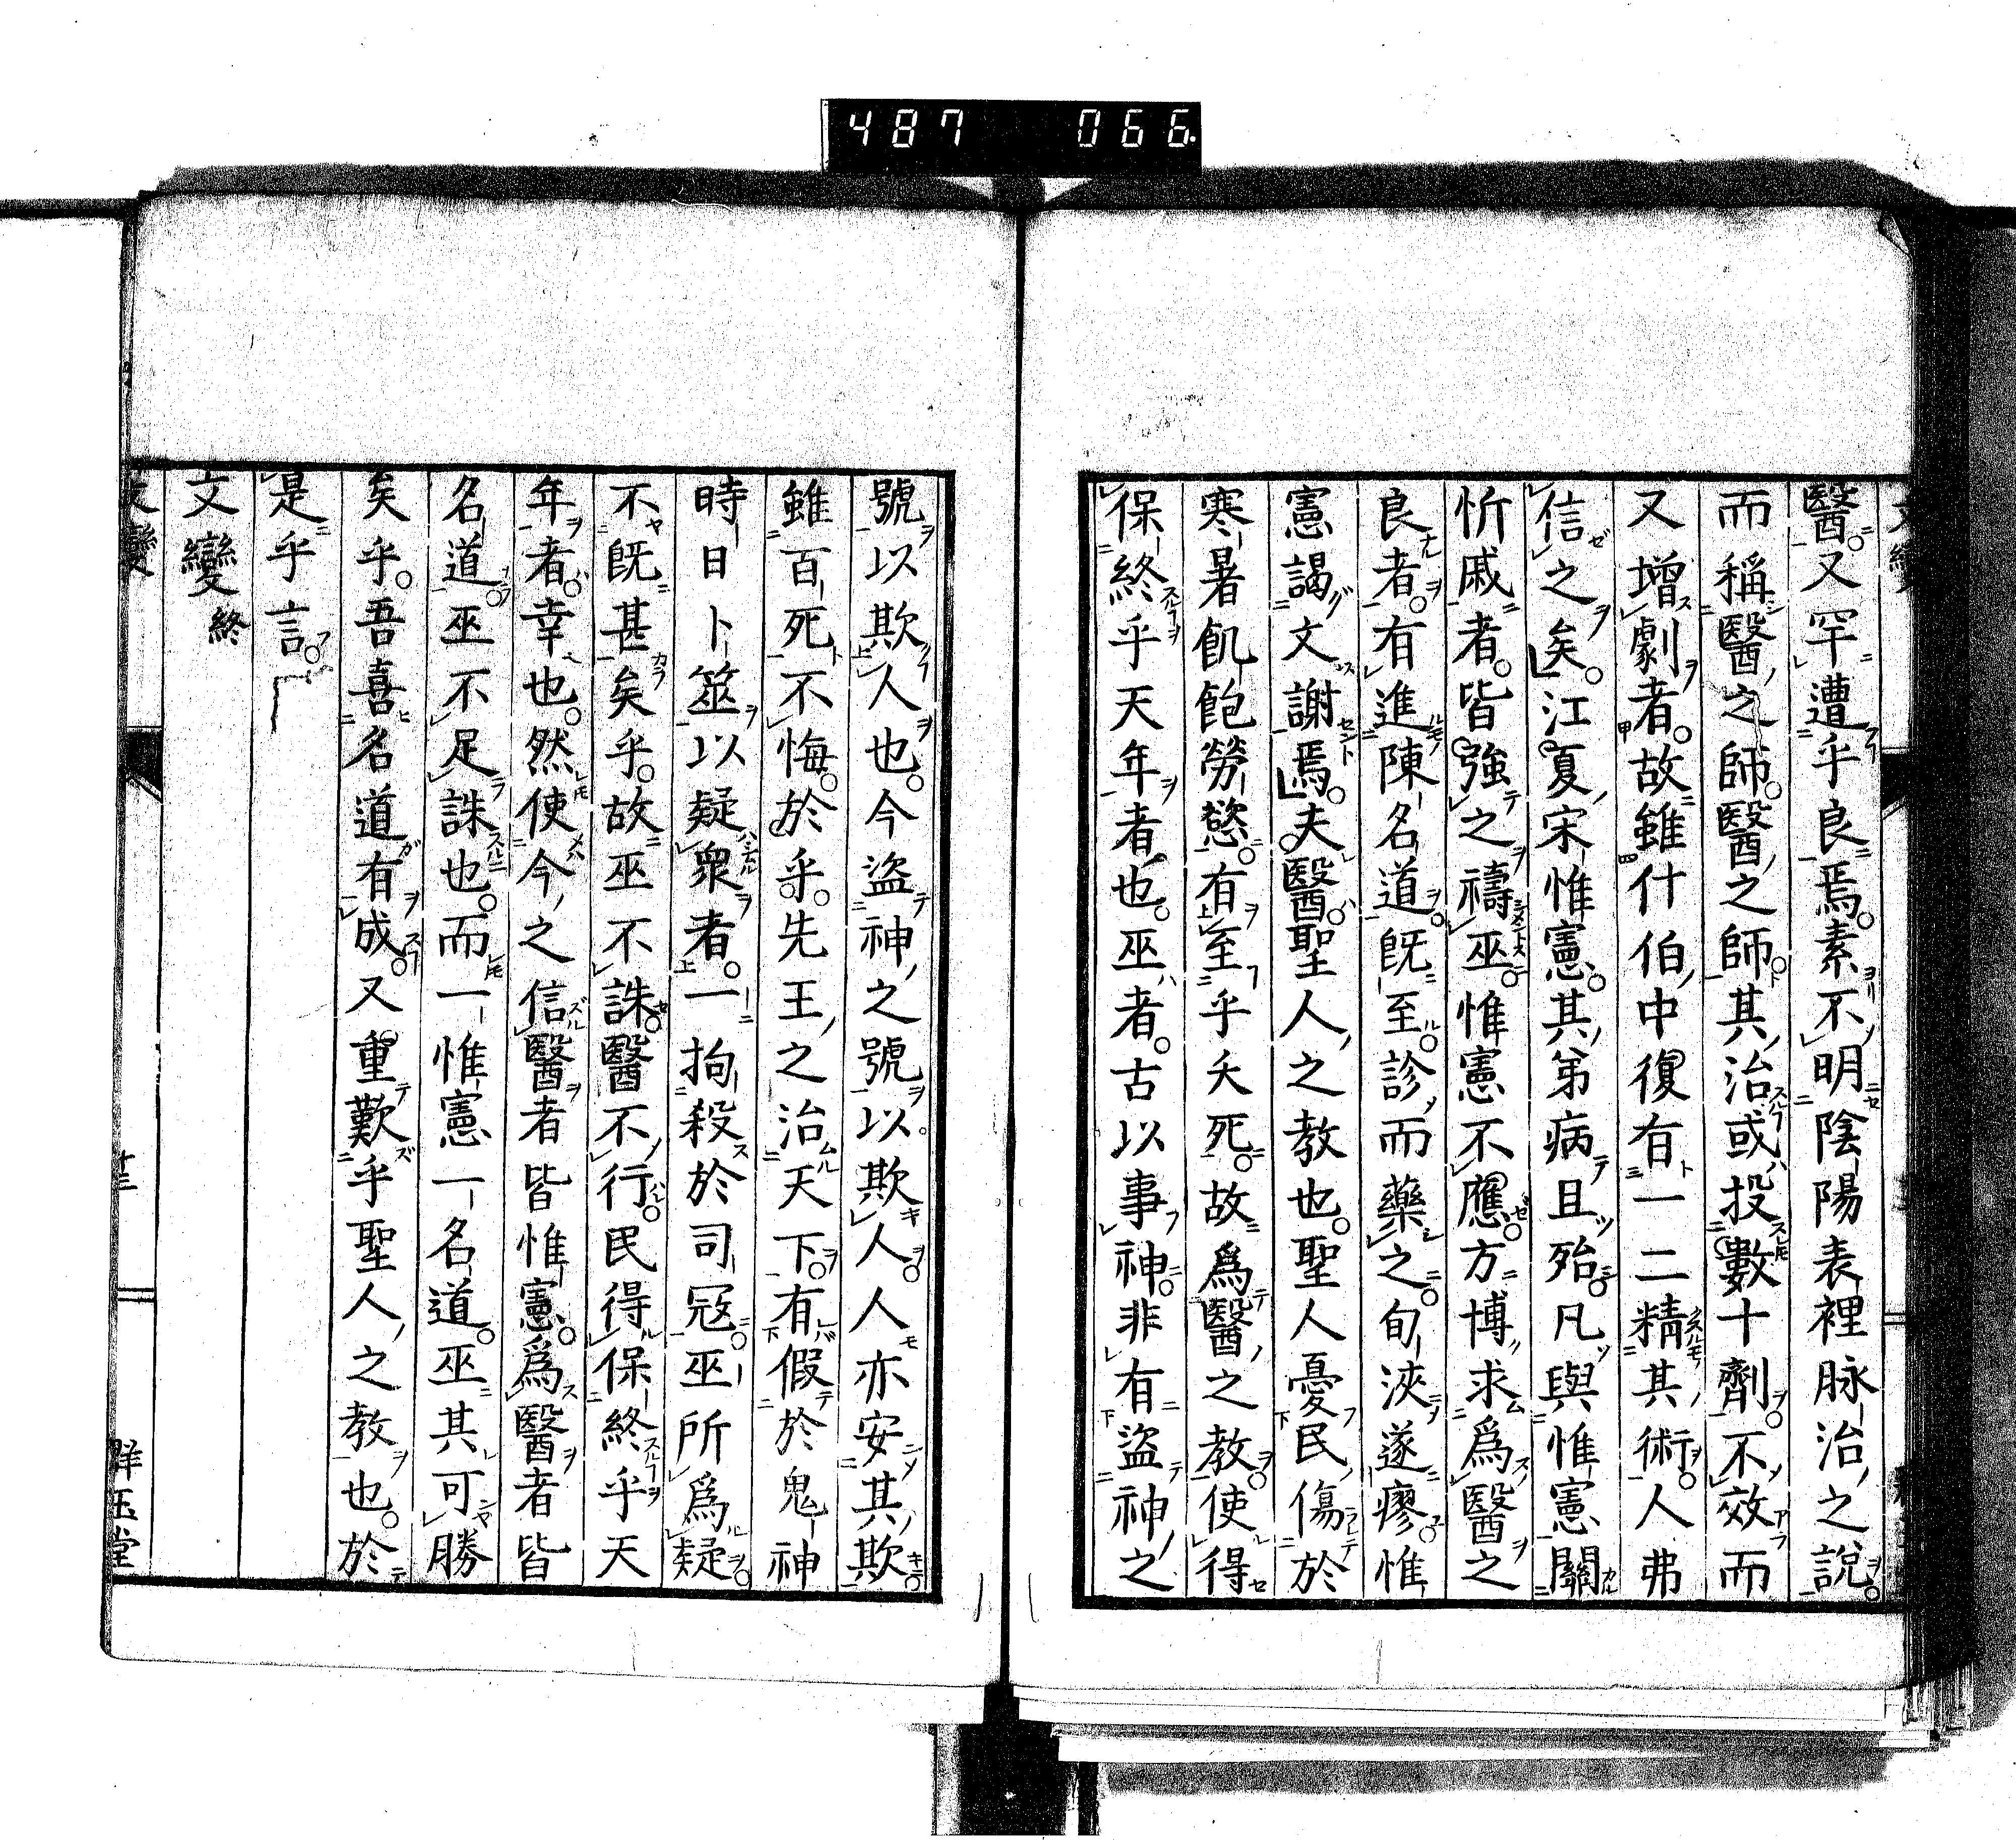 487 066
醫又罕遭乎良焉。素不明陰陽表裡脉治之說。
而稱醫之師。醫之師。其治或投數十劑。不效而
又增劇者。故雖什伯中復有一二精其術。人弗
信之矣。江夏宋惟憲。其弟病且殆。凡與惟憲關
忻戚者。皆強之禱巫。惟憲不應。方博求爲醫之
良者。有進陳名道。既至。診而藥之。旬浹遂瘳。惟
憲謁文謝焉。夫醫聖人之教也。聖人憂民傷於
寒暑飢飽勞慾。有至乎夭死。故爲醫之教。使得
保終乎天年者也。巫者。古以事神。非有盜神之
號以欺人也。今盜神之號以欺人。人亦安其欺
雖百死不悔。於乎。先王之治天下。有假於鬼神
時日卜筮以疑衆者。一拘殺於司冦。巫所爲疑。
不既甚矣乎。故巫不誅。醫不行。民得保終乎天
年者。幸也。然使今之信醫者皆惟憲。爲醫者皆
名道。巫不足誅也。而一惟憲一名道。巫其可勝
矣乎。吾喜名道有成。又重歎乎聖人之教也。於
是乎言。
文變終
文變
廿三
群玉堂